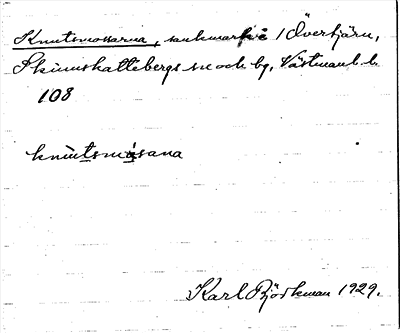 Knutsmossarna, sankmark i Överhjärn,
Skinnskattebergs sn och bg, Västmanl. l.
108
knutsmosana
Karl Björkman 1929.